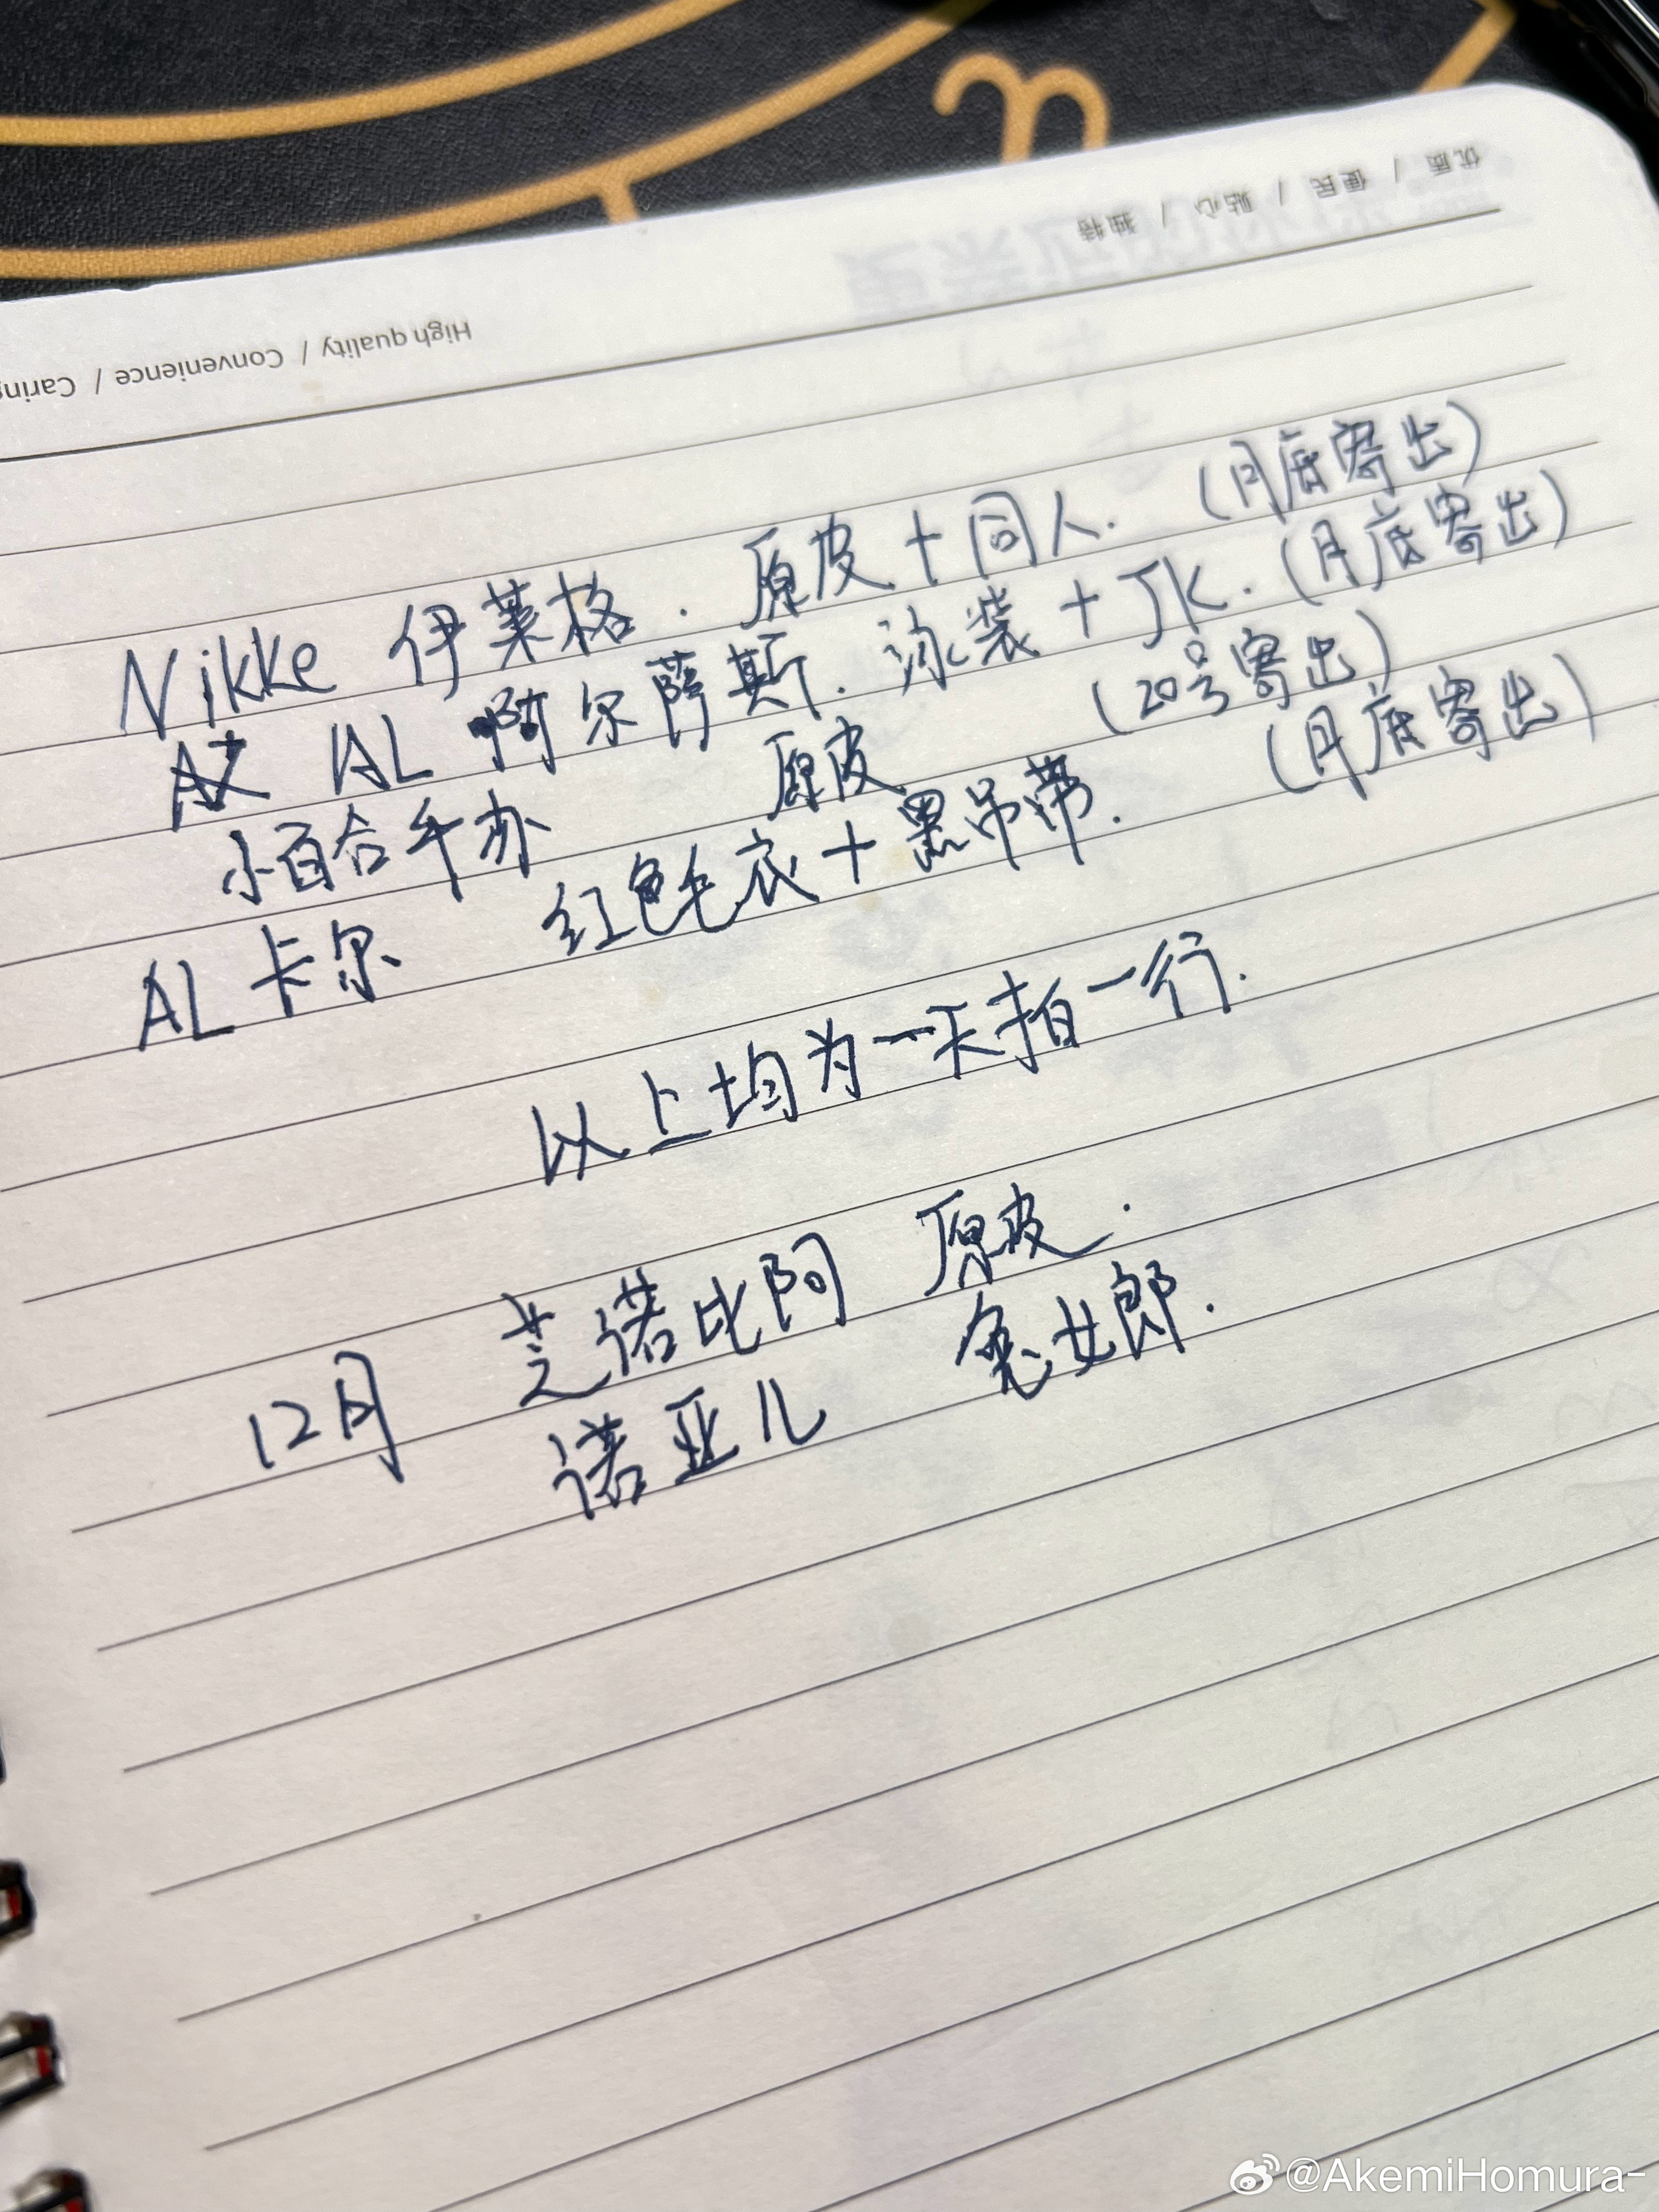 优质 / 便民 / 贴心 / 独特
High quality / Convenience / Caring
Nikke 伊莱格. 原皮+同人. (月底寄出)
AL 啊尔萨斯. 泳装+JK. (月底寄出)
小百合午办 原皮 (20号寄出)
AL 卡尔 红色毛衣+黑吊带. (月底寄出)
以上均为一天拍一行.
12月 芝诺比阿 原皮.
诺亚儿 兔女郎.
@AkemiHomura-